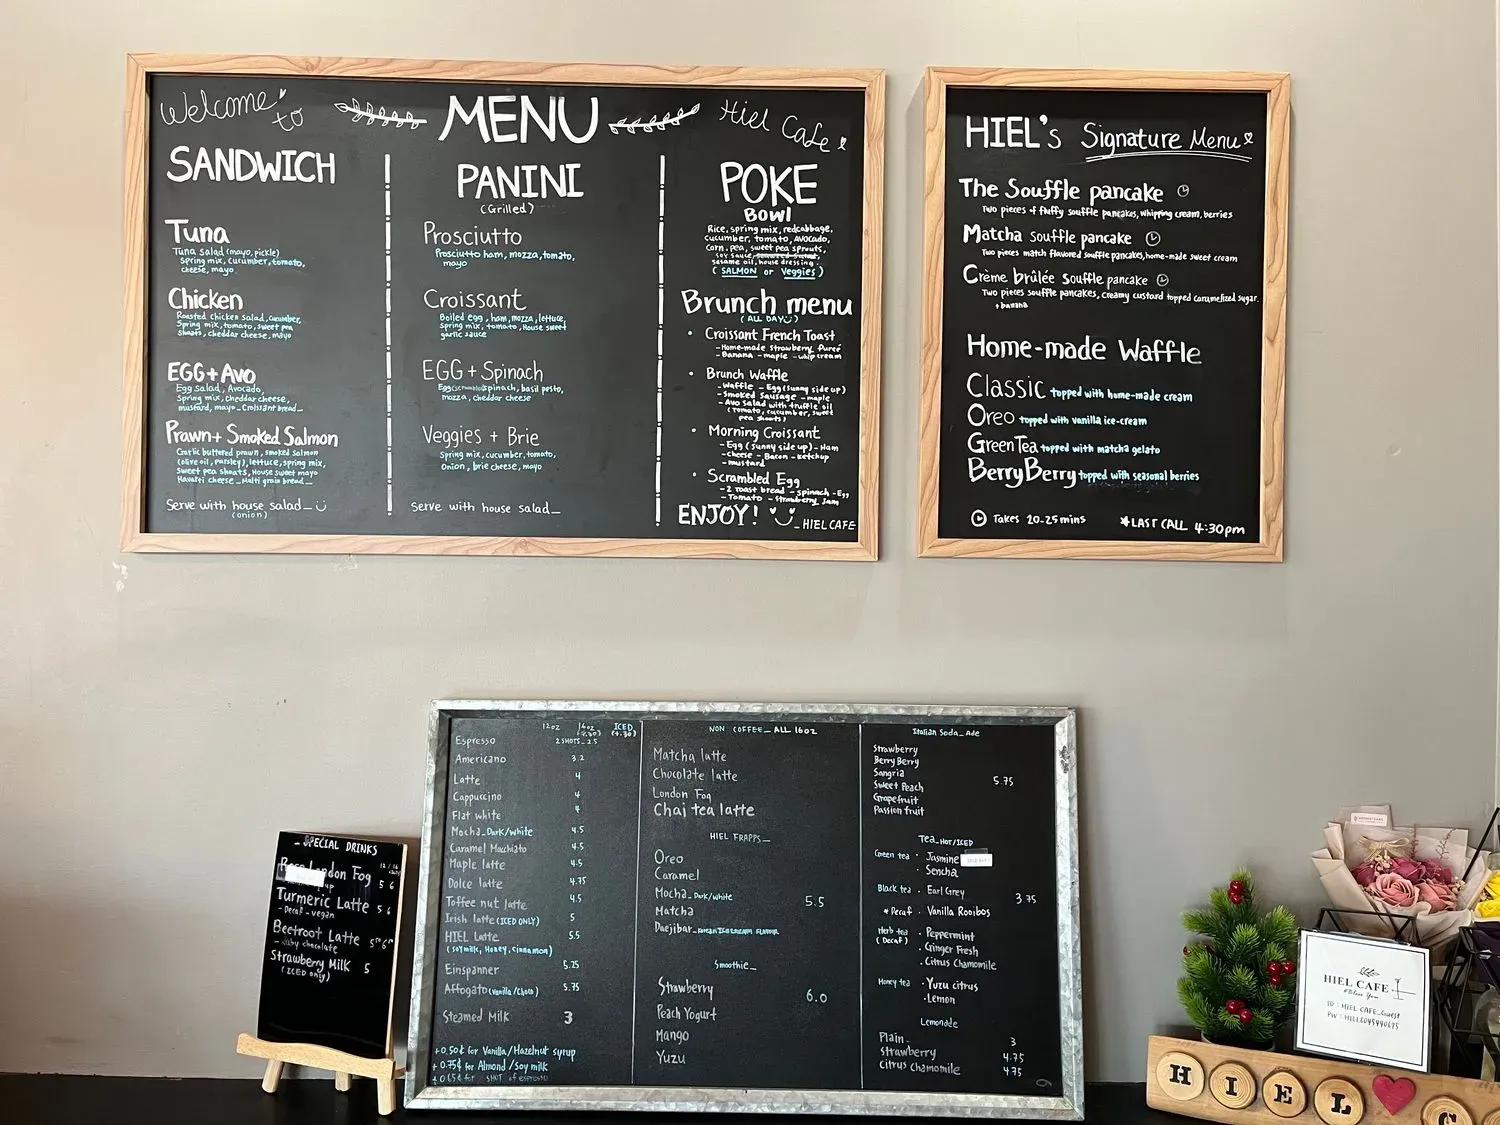 Welcome to
MENU
Hiel Cafe
SANDWICH
Tuna
Tuna salad (mayo, pickle)
Spring mix, cucumber, tomato,
cheese, mayo
Chicken
Roasted chicken salad, cucumber,
Spring mix, tomato, sweet pea
shoats, cheddar cheese, mayo
EGG + Avo
Egg salad, Avocado,
Spring mix, cheddar cheese,
mustard, mayo_Croissant bread_
Prawn + Smoked Salmon
Garlic buttered prawn, smoked salmon
(olive oil, parsley), lettuce, spring mix,
sweet pea shoats, House sweet mayo
Havarti cheese_Multi grain bread_
Serve with house salad_
(onion)
PANINI
(Grilled)
Prosciutto
Prosciutto ham, mozza, tomato,
mayo
Croissant
Boiled egg, ham, mozza, lettuce,
Spring mix, tomato, House sweet
garlic sauce
EGG + Spinach
Egg(scrambled)spinach, basil pesto,
mozza, cheddar cheese
Veggies + Brie
Spring mix, cucumber, tomato,
Onion, brie cheese, mayo
Serve with house salad_
POKE
Bowl
Rice, spring mix, redcabbage,
cucumber, tomato, AVOcado,
corn, pea, sweet pea sprouts,
soy sauce,
sesame oil, house dressing.
(SALMON or Veggies)
Brunch menu
(ALL DAY)
• Croissant French Toast
- Home-made strawberry pureé
- Banana - maple - whip cream
• Brunch Waffle
- Waffle - Egg (sunny side up)
- Smoked Sausage - maple
- Avo salad with truffle oil
(Tomato, cucumber, sweet
pea shoats)
• Morning Croissant
- Egg (sunny side up) - Ham
- cheese - Bacon - ketchup
- mustard
• Scrambled Egg
- 2 toast bread - spinach - Egg
- Tomato - Strawberry Jam
ENJOY!
_HIEL CAFE
HIEL's Signature Menu
The Souffle pancake
Two pieces of fluffy souffle pancakes, whipping cream, berries
Matcha souffle pancake
Two pieces match flavored souffle pancakes, home-made sweet cream
Crème brûlée souffle pancake
Two pieces souffle pancakes, creamy custard topped caramelized sugar.
+ banana
Home-made Waffle
Classic topped with home-made cream
Oreo topped with vanilla ice-cream
GreenTea topped with matcha gelato
BerryBerry topped with seasonal berries
Takes 20-25mins
★LAST CALL 4:30pm
_SPECIAL DRINKS
12 / 16
London Fog 5 6
Turmeric Latte 5 6
- Decaf - vegan
Beetroot Latte
chocolate
Strawberry Milk 5
(ICED only)
12oz 16oz ICED
(4.30) (4.30)
Espresso 2 SHOTS_2.5
Americano 3.2
Latte 4
Cappuccino 4
Flat white 4
Mocha_Dark/white 4.5
Caramel Macchiato 4.5
Maple latte 4.5
Dolce latte 4.75
Toffee nut latte 4.5
Irish latte (ICED ONLY) 5
HIEL Latte 5.5
(soy milk, Honey, Cinnamon)
Einspanner 5.25
Affogato (Vanilla / Choco) 5.75
Steamed Milk 3
+0.50¢ for Vanilla / Hazelnut syrup
+0.75¢ for Almond / Soy milk
+0.65¢ for SHOT of espresso
NON COFFEE_ALL 16oz
Matcha latte
Chocolate latte
London Fog
Chai tea latte
HIEL FRAPPS_
Oreo
Caramel
Mocha_Dark/white 5.5
Matcha
Daejibar_Korean Icecream flavour
Smoothie_
Strawberry 6.0
Peach Yogurt
Mango
Yuzu
Italian Soda_Ade
Strawberry
Berry Berry
Sangria 5.75
Sweet Peach
Grapefruit
Passion fruit
Tea_Hot/ICED
Green tea • Jasmine
• Sencha
Black tea • Earl Grey 3.75
*Decaf • Vanilla Rooibos
Herb tea • Peppermint
(Decaf) • Ginger Fresh
• Citrus Chamomile
Honey tea • Yuzu citrus
• Lemon
Lemonade
Plain 3
Strawberry 4.75
Citrus Chamomile 4.75
HIEL CAFE
ID : HIEL CAFE_Guest
PW : HIEL6045440675
HIEL